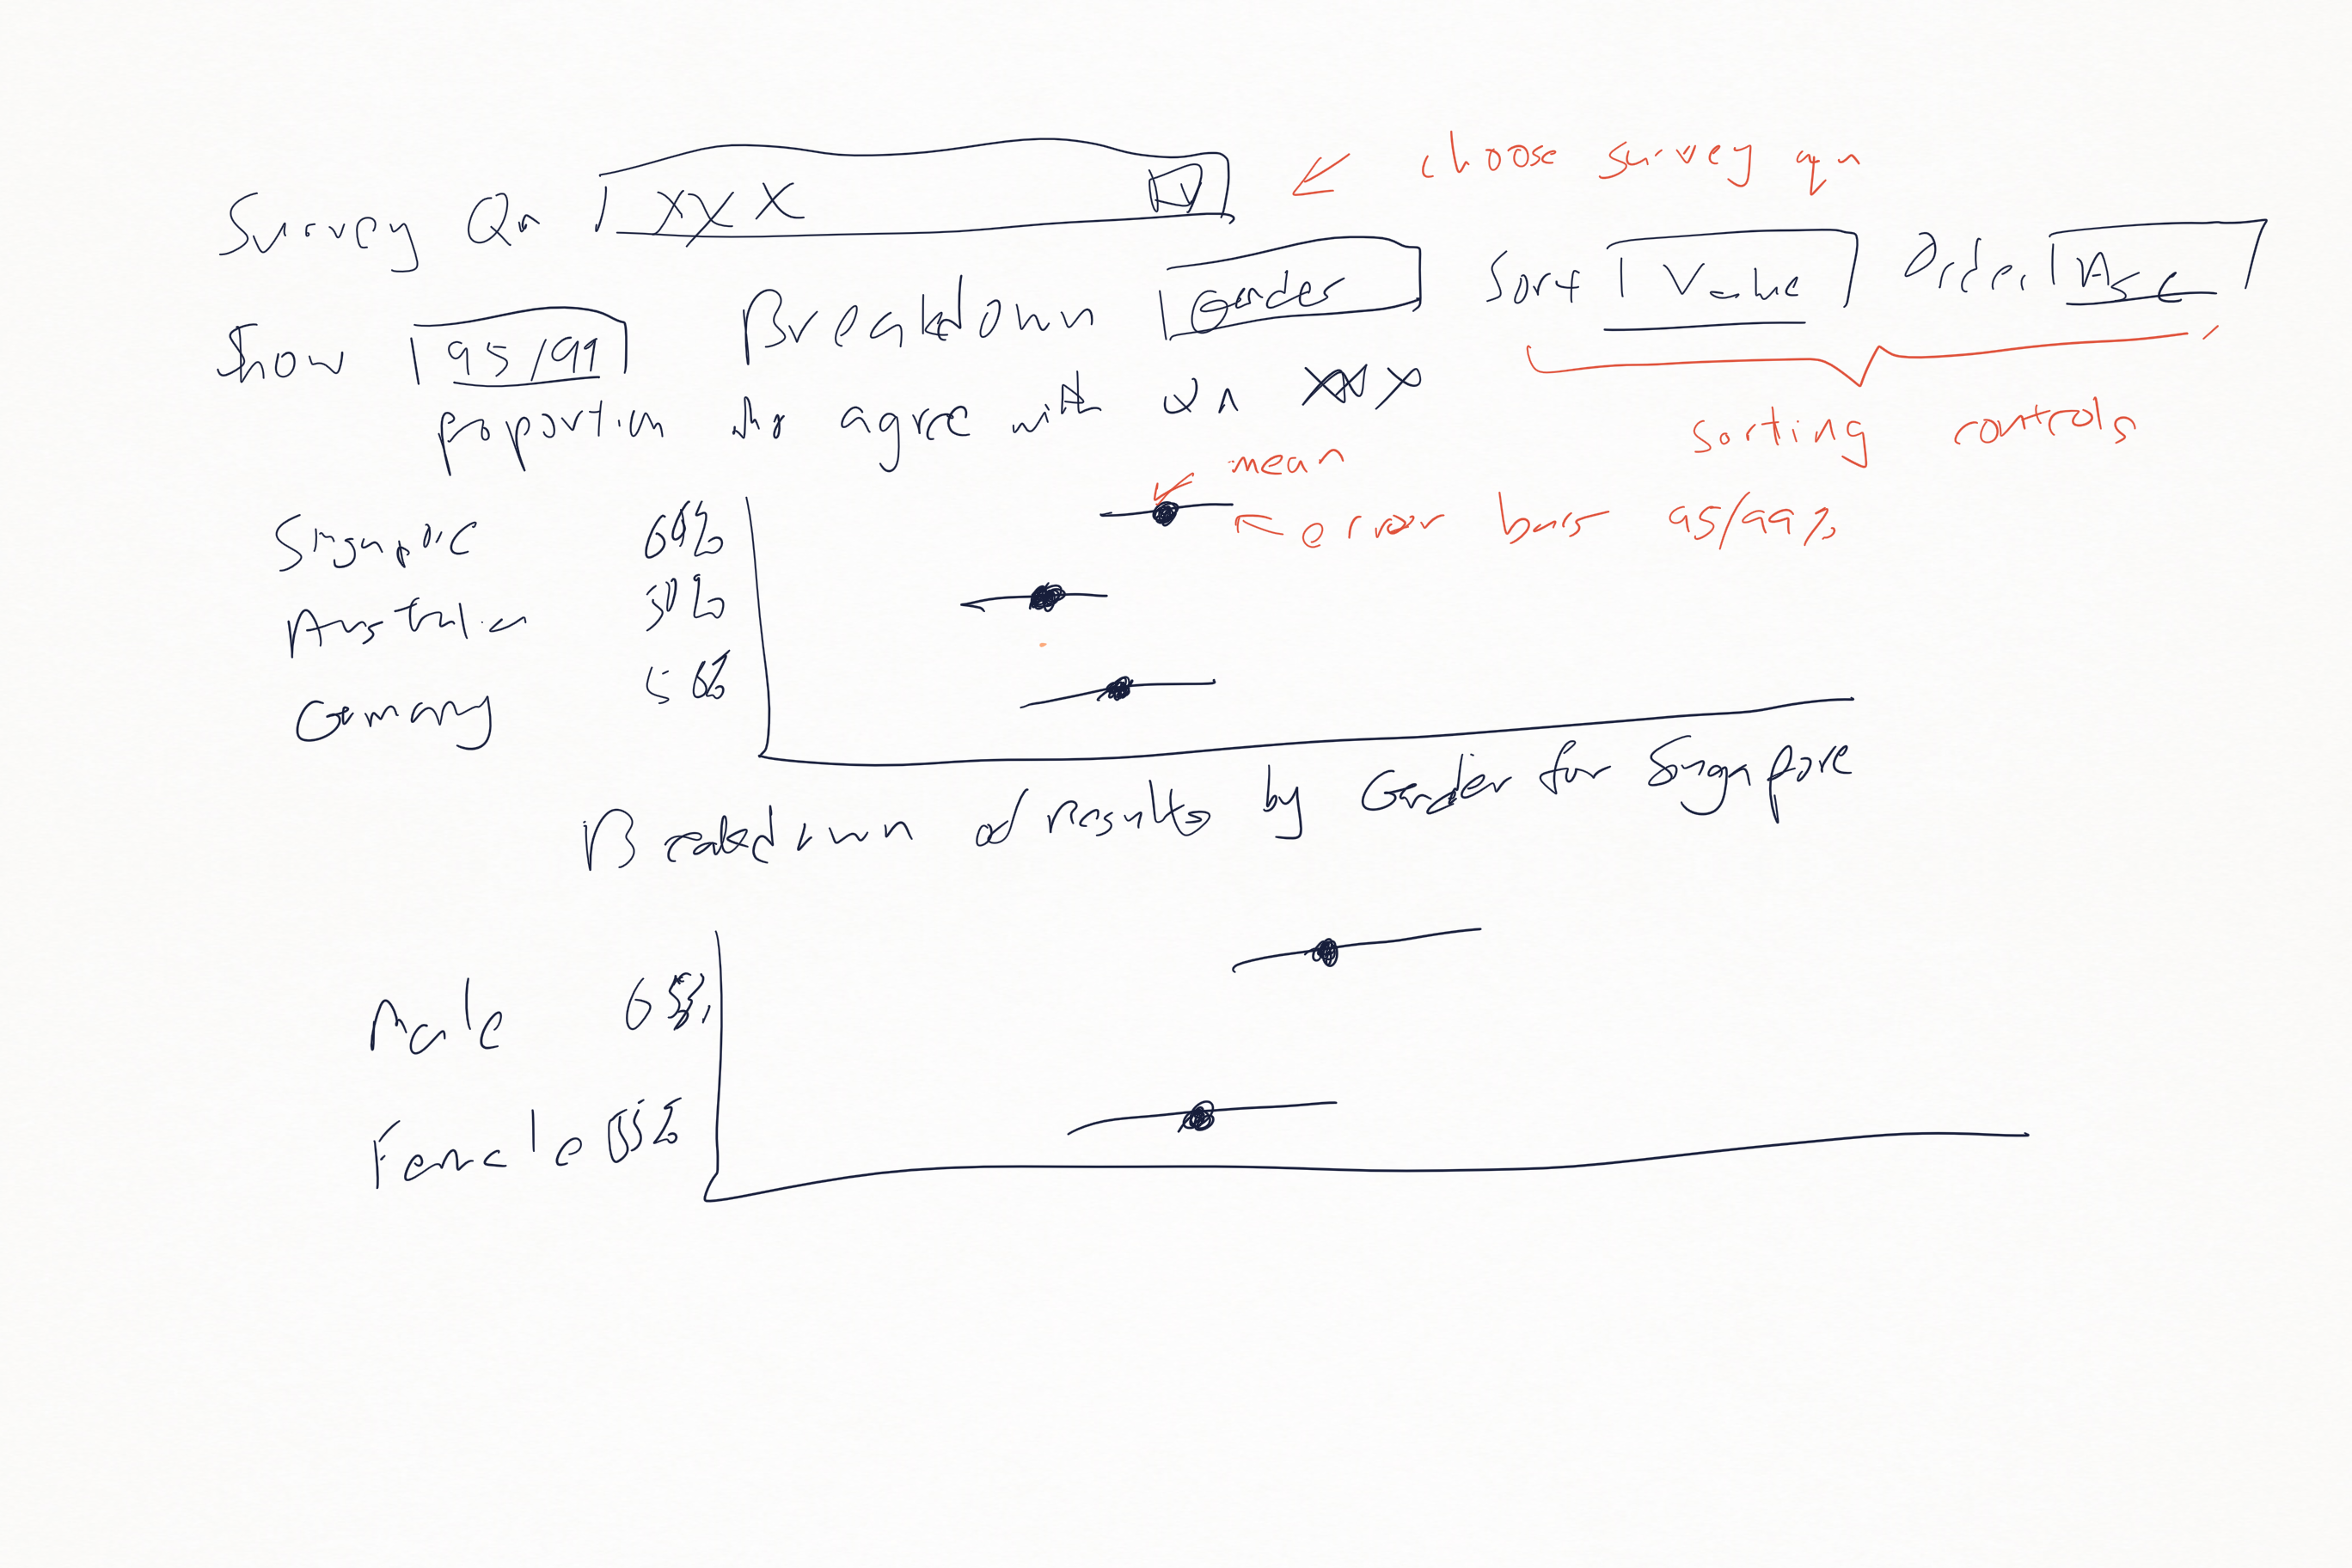 Survey Qn XXX choose survey qn
Show 95/99 Breakdown Gender Sort Value Order Asc
proportion who agree with Qn XXX
sorting controls
mean
error bars 95/99%
Singapore
Australia
Germany 56%
Breakdown of results by Gender for Singapore
Male
Female 55%